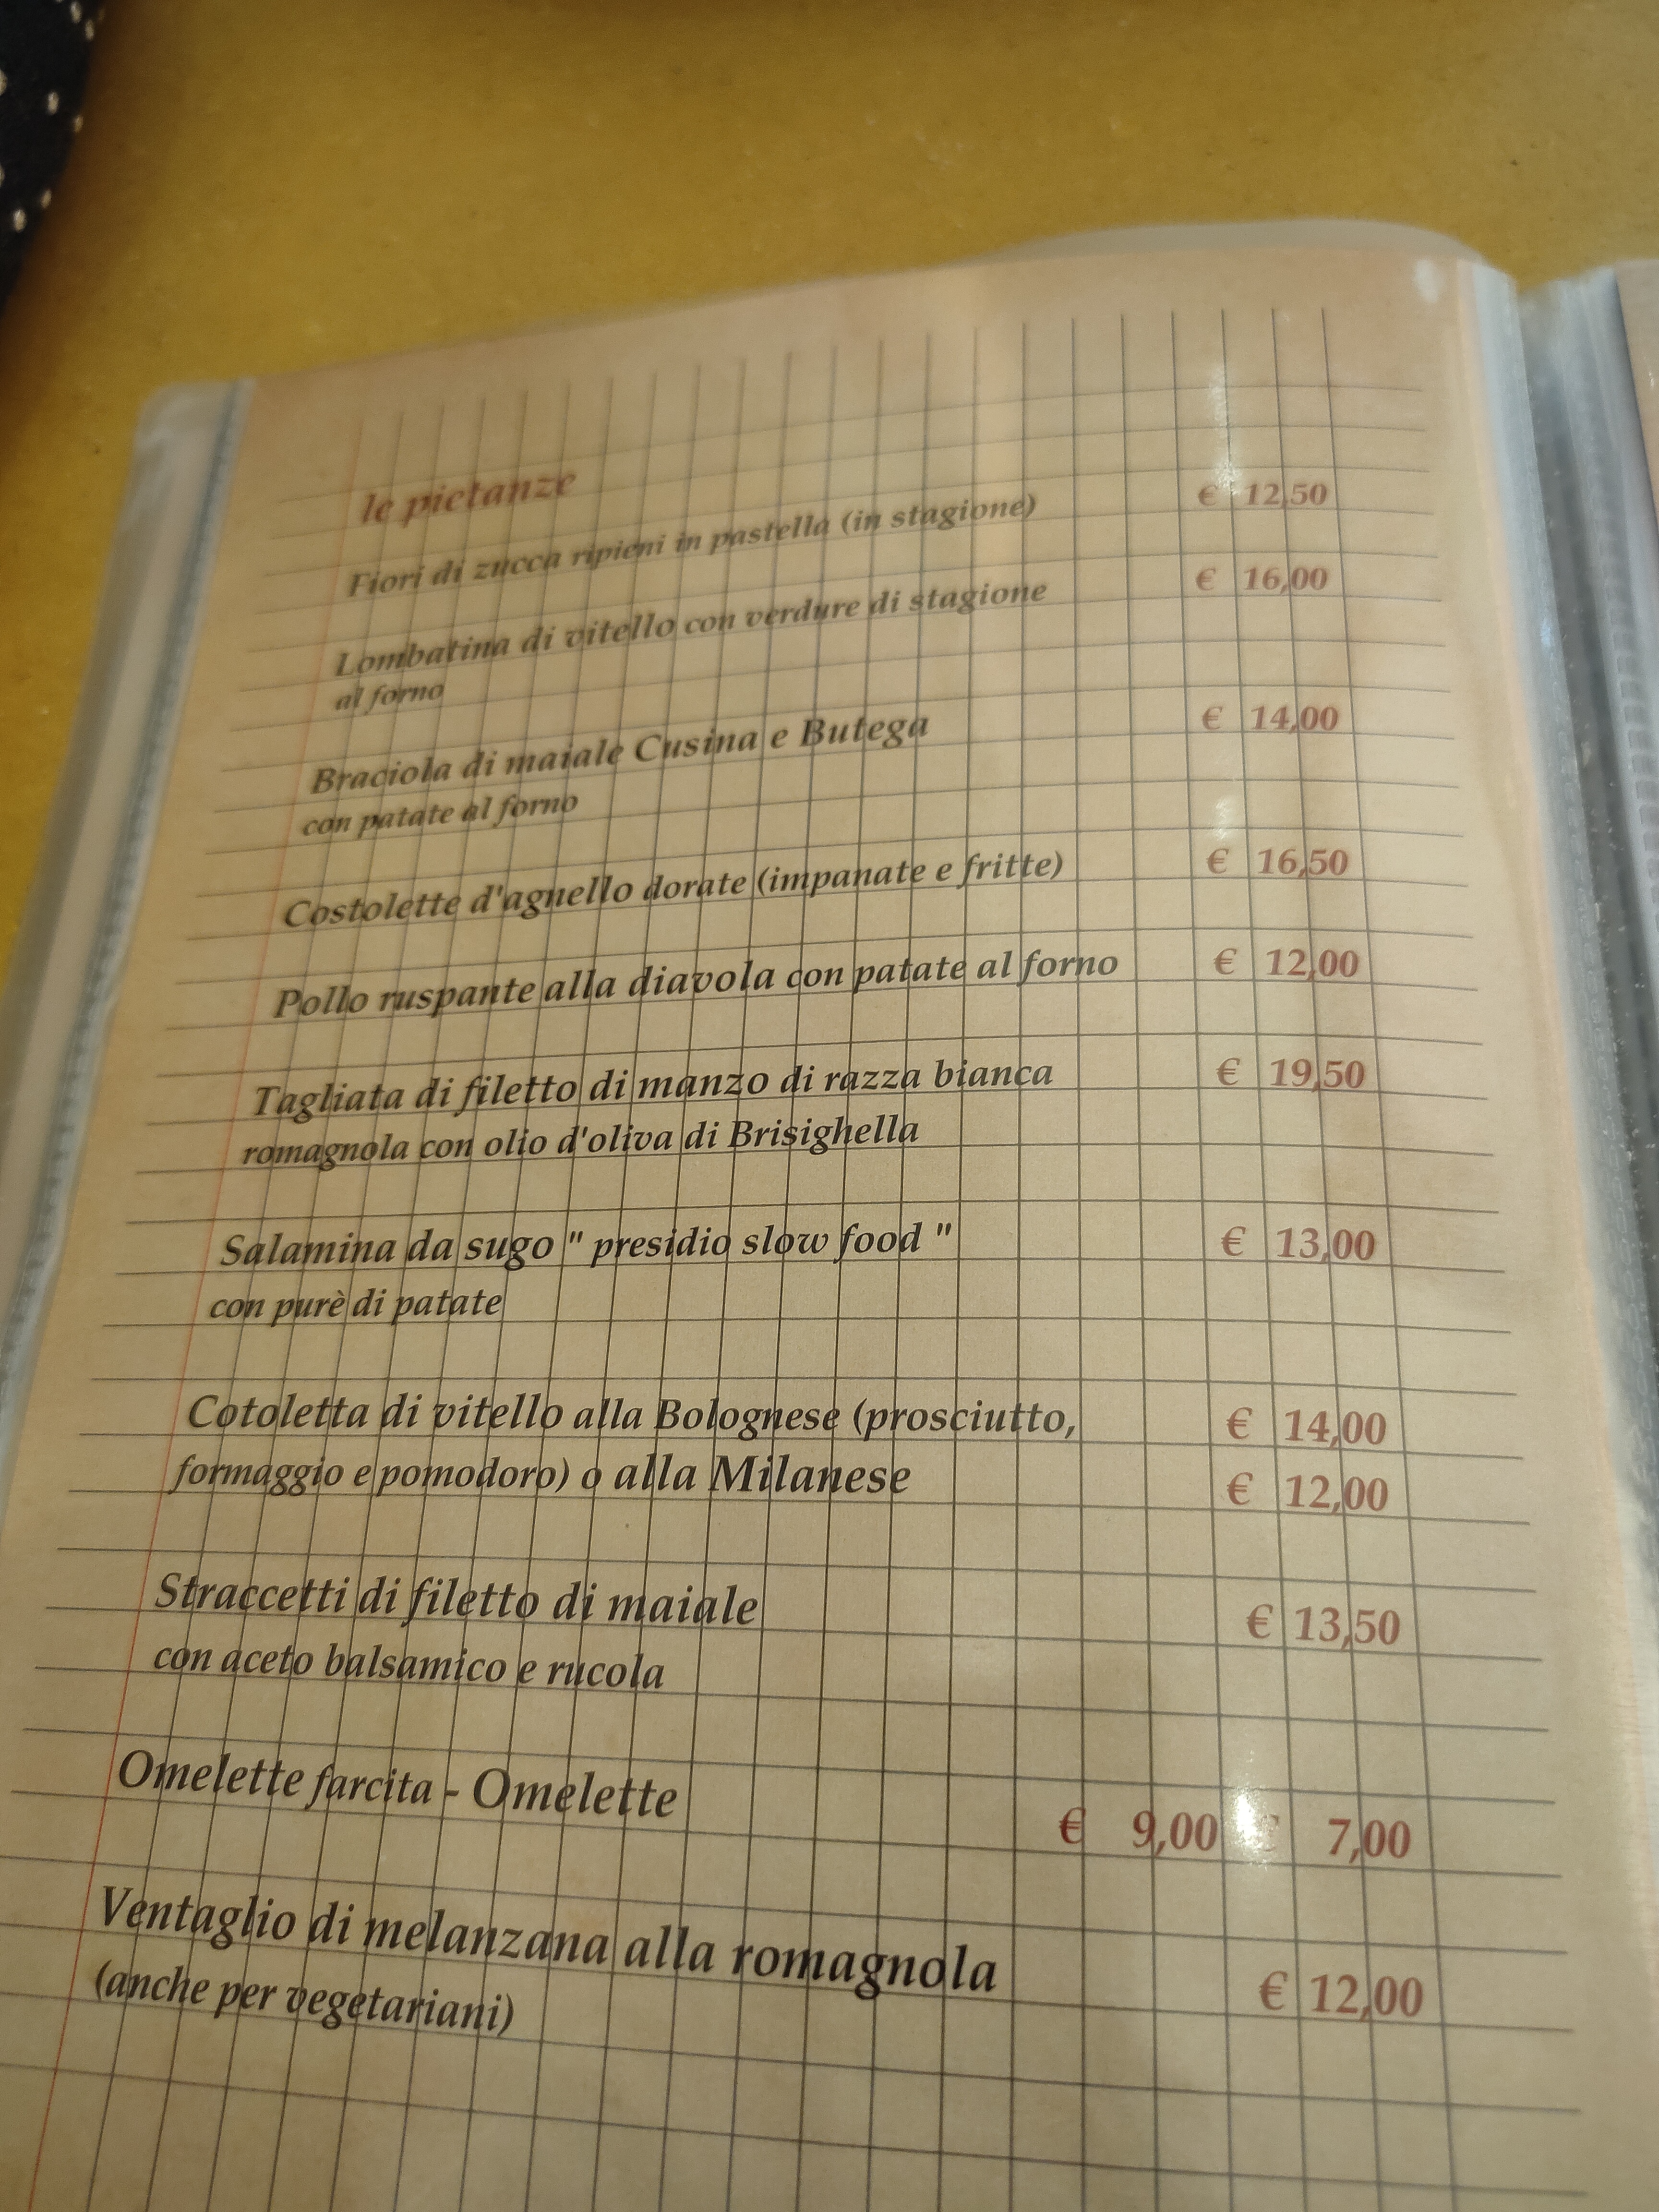 le pietanze
Fiori di zucca ripieni in pastella (in stagione) € 12,50
Lombatina di vitello con verdure di stagione € 16,00
al forno
Braciola di maiale Cusina e Butega € 14,00
con patate al forno
Costolette d'agnello dorate (impanate e fritte) € 16,50
Pollo ruspante alla diavola con patate al forno € 12,00
Tagliata di filetto di manzo di razza bianca € 19,50
romagnola con olio d'oliva di Brisighella
Salamina da sugo " presidio slow food " € 13,00
con purè di patate
Cotoletta di vitello alla Bolognese (prosciutto, € 14,00
formaggio e pomodoro) o alla Milanese € 12,00
Straccetti di filetto di maiale € 13,50
con aceto balsamico e rucola
Omelette farcita - Omelette € 9,00 € 7,00
Ventaglio di melanzana alla romagnola € 12,00
(anche per vegetariani)